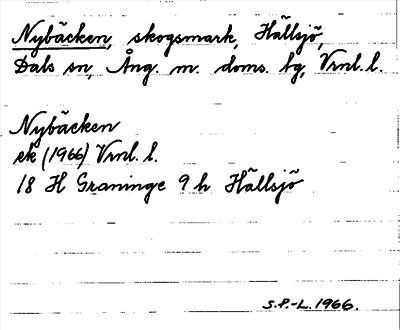 Nybäcken, skogsmark, Hällsjö,
Dals sn, Ång. m. doms. bg, Vrnl. l.
Nybäcken
ek (1966) Vrnl. l.
18 H Graninge 9 h Hällsjö
S.P.-L. 1966.